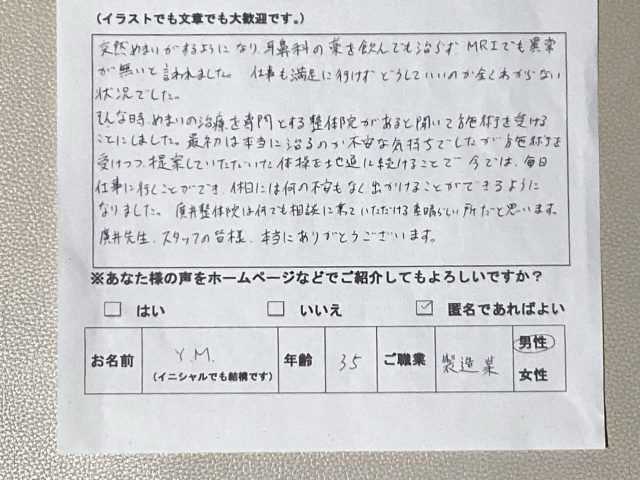 (イラストでも文章でも大歓迎です。)
突然めまいがするようになり、耳鼻科の薬を飲んでも治らず MRIでも異常
が無いと言われました。 仕事も満足に行けず どうしていいのか全くわからない
状況でした。
そんな時、めまいの治療を専門とする整体院があると聞いて施術を受ける
ことにしました。最初は本当に治るのか不安な気持ちでしたが施術を
受けつつ、提案していただいた体操を地道に続けることで 今では、毎日
仕事に行くことができ、休日には何の不安もなく出かけることができるように
なりました。廣井整体院は何でも相談に乗っていただける素晴らしい所だと思います。
廣井先生、スタッフの皆様、本当にありがとうございます。
※あなた様の声をホームページなどでご紹介してもよろしいですか?
はい いいえ 匿名であればよい
お名前 Y.M. (イニシャルでも結構です) 年齢 35 ご職業 製造業 男性 女性